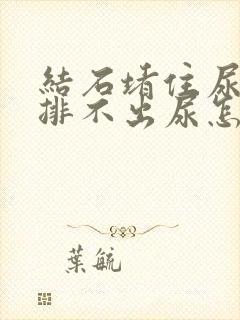 結石堵住尿
排不出尿怎
葉毓